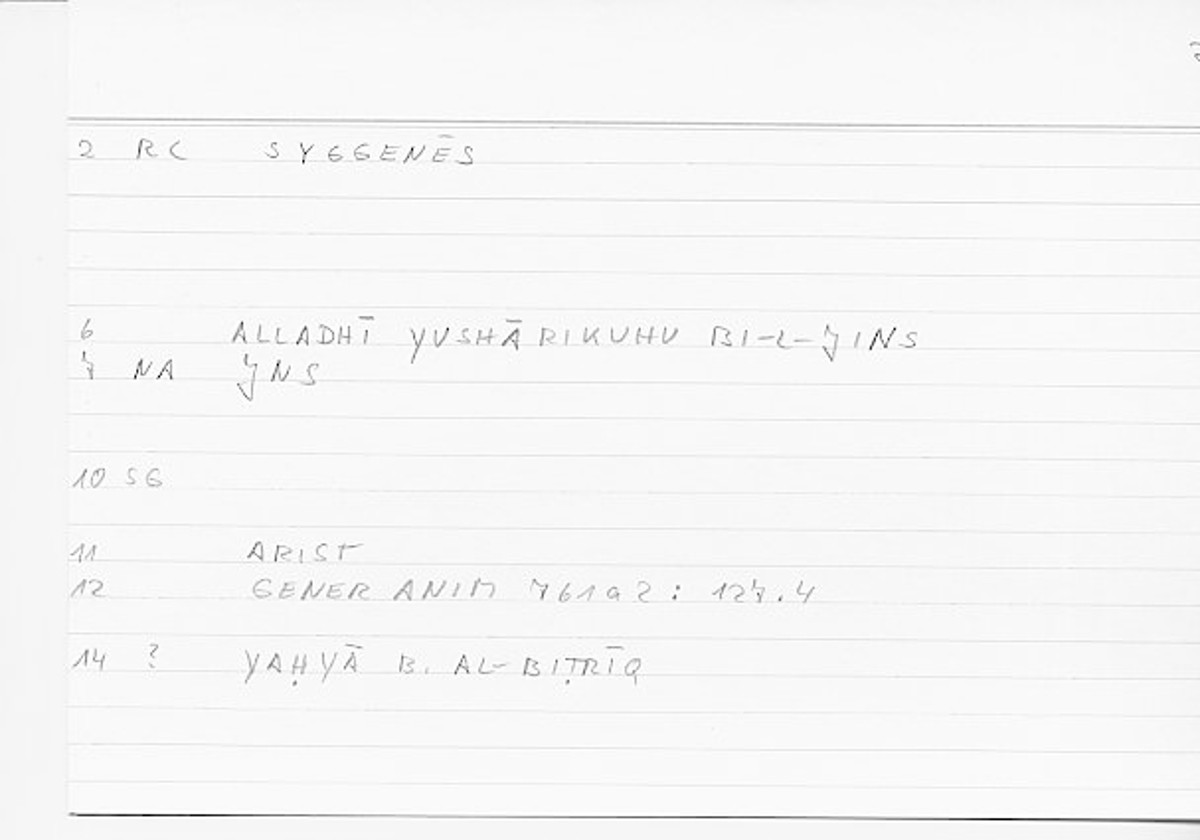 2 RC SYGGENĒS
6 ALLADHĪ YUSHĀRIKUHU BI-L-JINS
7 NA JNS
10 SG
11 ARIST
12 GENER ANIM 761a2: 127.4
14 ? YAḤYĀ B. AL-BIṬRĪQ